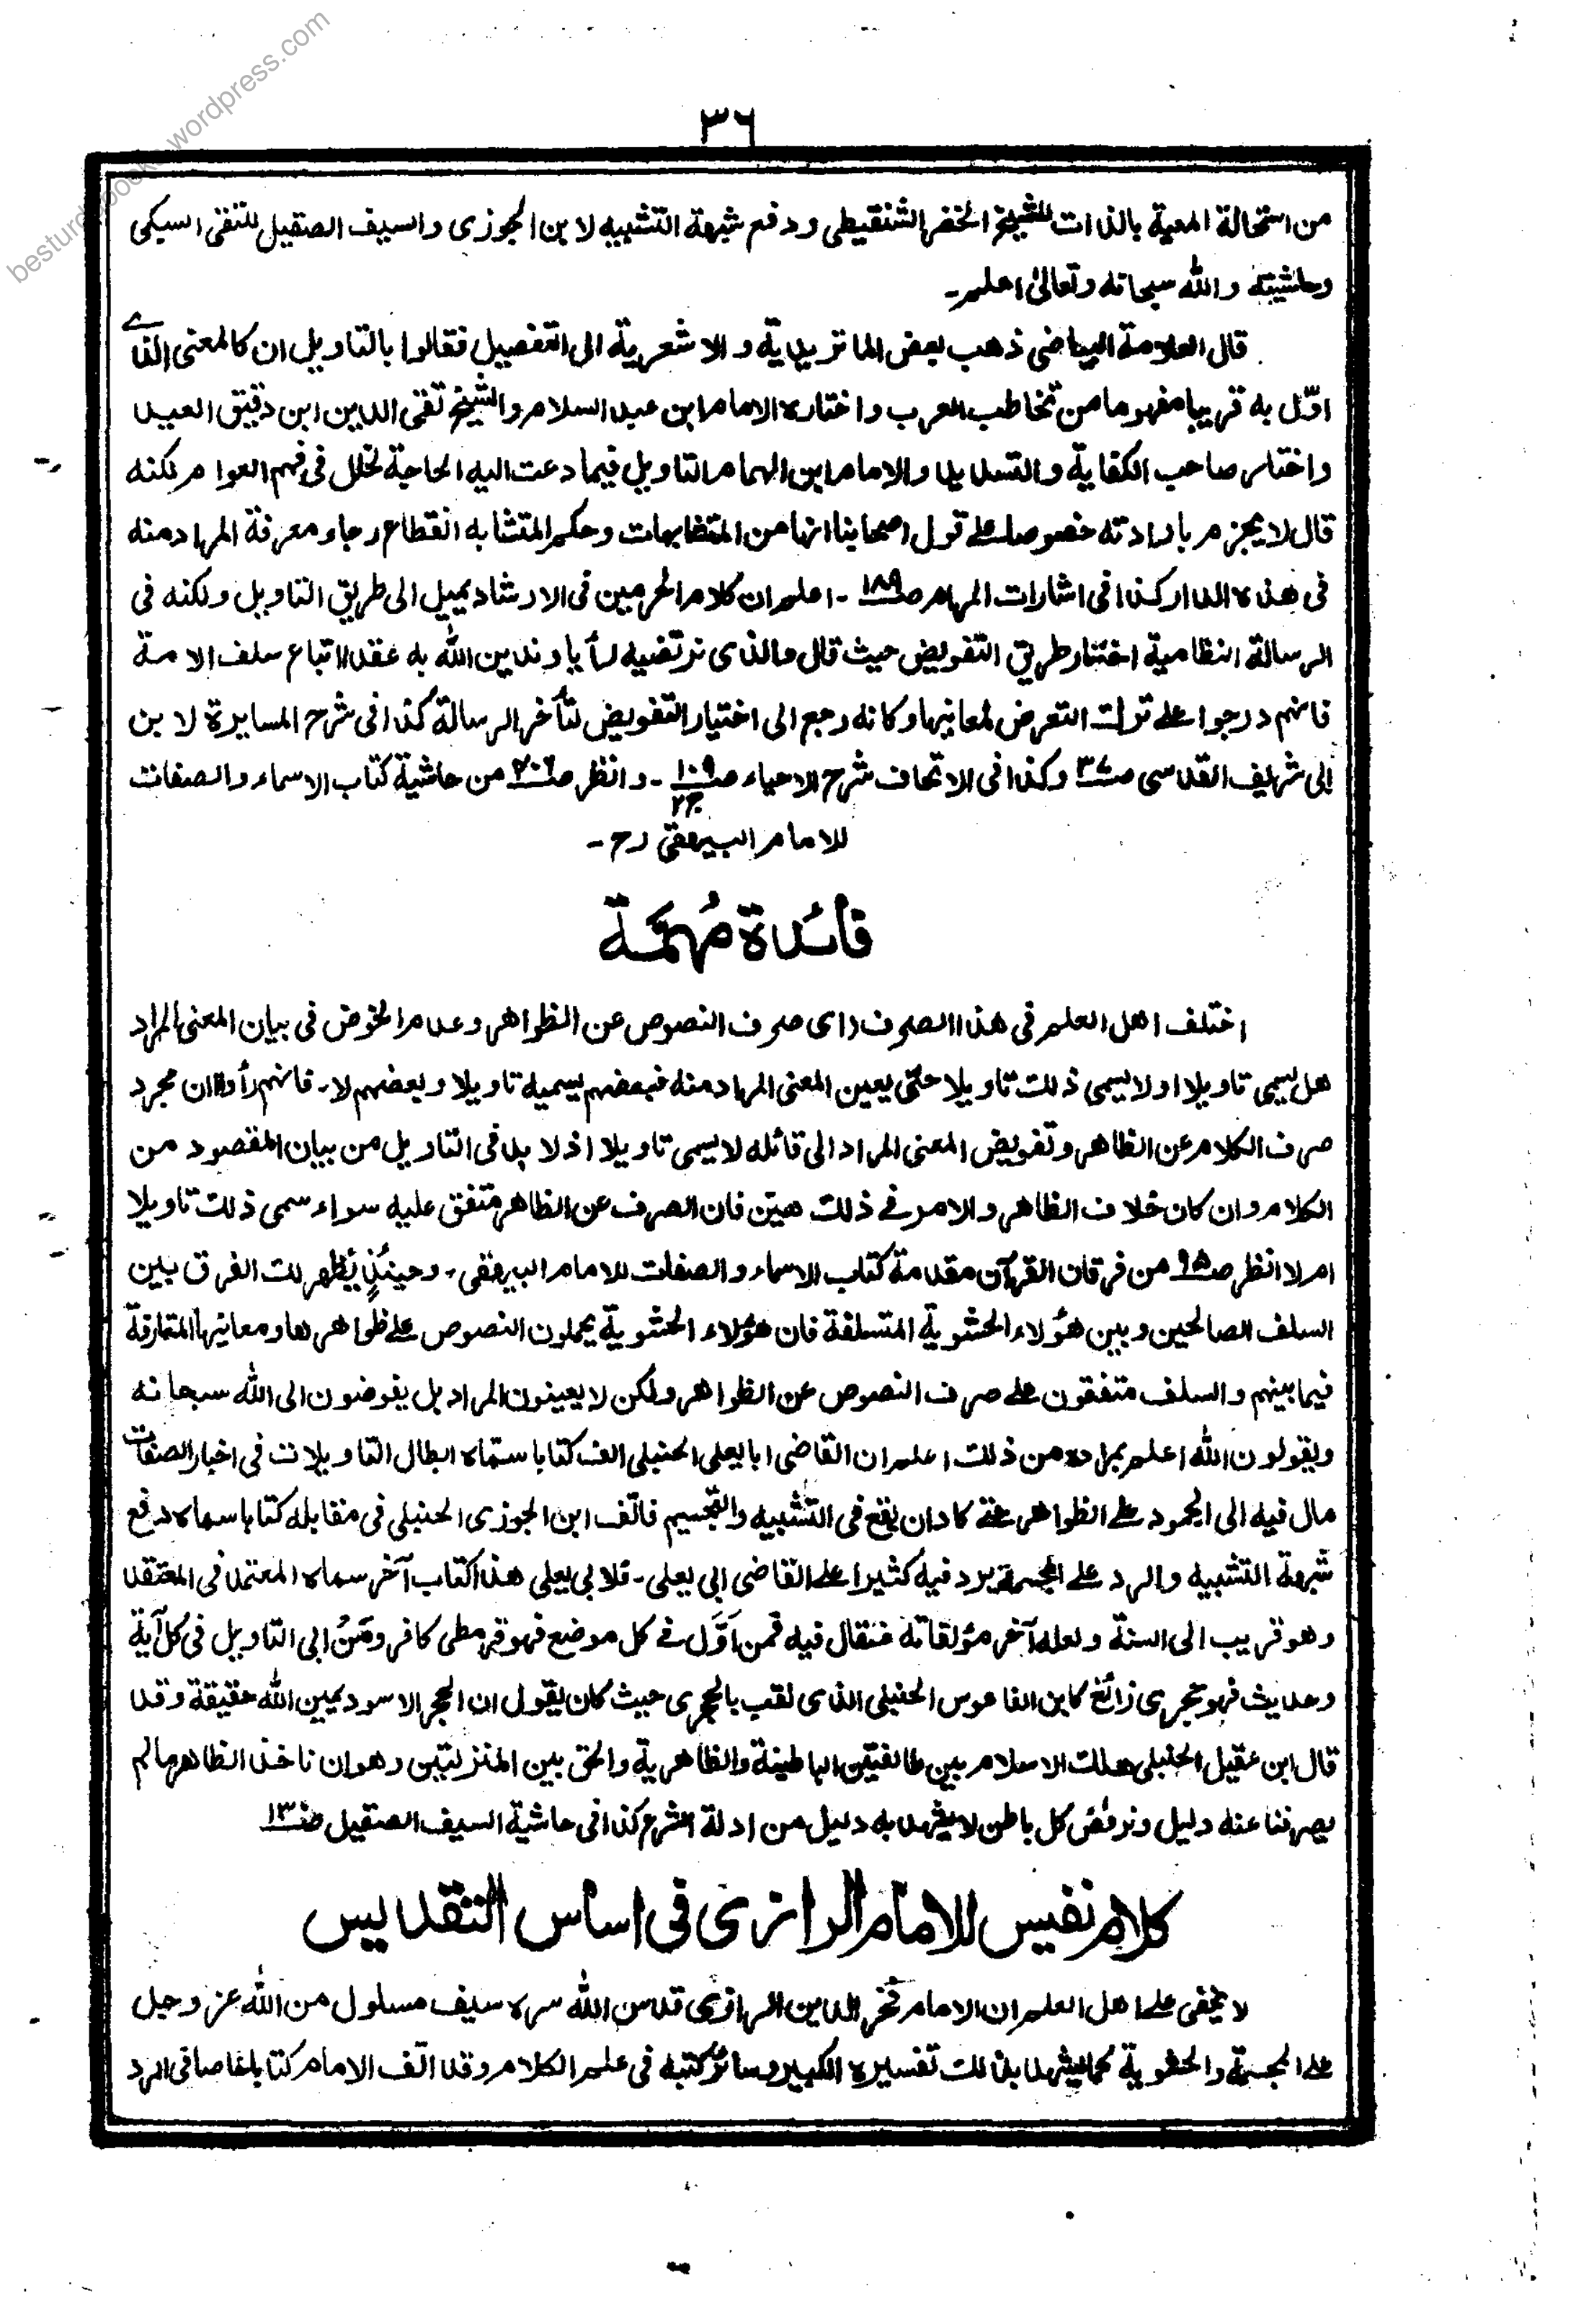 ٣٦
من استحالة المعية بالذات للشيخ الخضر الشنقيطى ودفع شبهة التشبيه لابن الجوزى والسيف الصقيل للتقى السبكى
وحاشيته والله سبحانه وتعالىٰ اعلم۔
قال العلامة البياضى ذهب بعض الماتريدية والاشعرية الى التفصيل فقالوا بالتاويل ان كا لمعنى الذے
اوّل به قريبا مفهوما من تخاطب العرب واختاره الامام ابن عبد السلام والشيخ تقى الدين ابن دقيق العيد
واختار صاحب الكفاية والتسديد والامام ابن الهمام التاويل فيما دعت اليه الحاجة لخلل فى فهم العوام لكنه
قال لا يجزم بارادته خصوصا علے قول اصحابنا انها من المتشابهات وحكم المتشابه انقطاع رجاء معرفة المراد منه
فى هذه الدار كذا فى اشارات المرام صـ١٨٩ ـ اعلم ان كلام الحرمين فى الارشاد يميل الى طريق التاويل ولكنه فى
الرسالة النظامية اختار طريق التفويض حيث قال والذى نرتضيه رأيا وندين الله به عقدا اتباع سلف الامة
فانهم درجوا علے ترك التعرض لمعانيها وكانه رجع الى اختيار التفويض لتأخر الرسالة كذا فى شرح المسايرة لابن
ابى شريف القدسى صـ٣٧ وكذا فى الاتحاف شرح الاحياء صـ١٠٩ ج٢ ـ وانظر صـ٤٠٦ من حاشية كتاب الاسماء والصفات
للامام البيهقى رح ـ
فائدة مُهمّة
اختلف اهل العلم فى هذا الصرف (اى صرف النصوص عن الظواهر وعدم الخوض فى بيان المعنى المراد
هل يسمى تاويلا اولا يسمى ذلك تاويلا حتّى يعين المعنى المراد منه فبعضهم يسميه تاويلا وبعضهم لا۔ فانهم رأوا ان مجرد
صرف الكلام عن الظاهر وتفويض المعنى المراد الى قائله لا يسمى تاويلا اذ لا بد فى التاويل من بيان المقصود من
الكلام وان كان خلاف الظاهر والامر فے ذلك هيّن فان الصرف عن الظاهر متفق عليه سواء سمى ذلك تاويلا
ام لا انظر صـ٩٥ من فرقان القرآن مقدمة كتاب الاسماء والصفات للامام البيهقى۔ وحينئذٍ يظهر لك الفرق بين
السلف الصالحين وبين هؤلاء الحشوية المتسلفة فان هؤلاء الحشوية يحملون النصوص علے ظواهرها ومعانيها المتعارفة
فيما بينهم والسلف متفقون علے صرف النصوص عن الظواهر ولكن لا يعينون المراد بل يفوضون الى الله سبحانه
ويقولون الله اعلم بمراده من ذلك اعلم ان القاضى ابا يعلى الحنبلى الف كتابا سمّاه ابطال التاويلات فى اخبار الصفات
مال فيه الى الجمود علے الظواهر حتى كاد ان يقع فى التشبيه والتجسيم فالّف ابن الجوزى الحنبلى فى مقابله كتابا سماه دفع
شبهة التشبيه والرد علے المجسمة يرد فيه كثيرا علے القاضى ابى يعلى۔ فلابى يعلى هذا كتاب آخر سماه المعتمد فى المعتقد
وهو قريب الى السنة ولعله آخر مؤلفاته فقال فيه فمن اَوَّل فے كل موضع فهو قرمطى كافر ومَنْ ابى التاويل فى كل آية
وحديث فهو حجرى زائغ كابن الفاعوس الحنبلى الذى لقب بالحجرى حيث كان يقول ان الحجر الاسود يمين الله حقيقة وقد
قال ابن عقيل الحنبلى هلك الاسلام بين طائفتين الباطنية والظاهرية والحق بين المنزلتين وهو ان ناخذ الظاهر ما لم
يصرفنا عنه دليل ونرفض كل باطن لا يشهد به دليل من ادلة الشرع كذا فى حاشية السيف الصقيل صـ١٣
كلام نفيس للامام الرازى فى اساس التقديس
لا يخفى على اهل العلم ان الامام فخر الدين الرازى قدس الله سره سيف مسلول من الله عز وجل
علے المجسمة والحشوية كما يشهد بذالك تفسيره الكبير وسائر كتبه فى علم الكلام وقد الّف الامام كتابا خاصا فى الرد
besturdubooks.wordpress.com